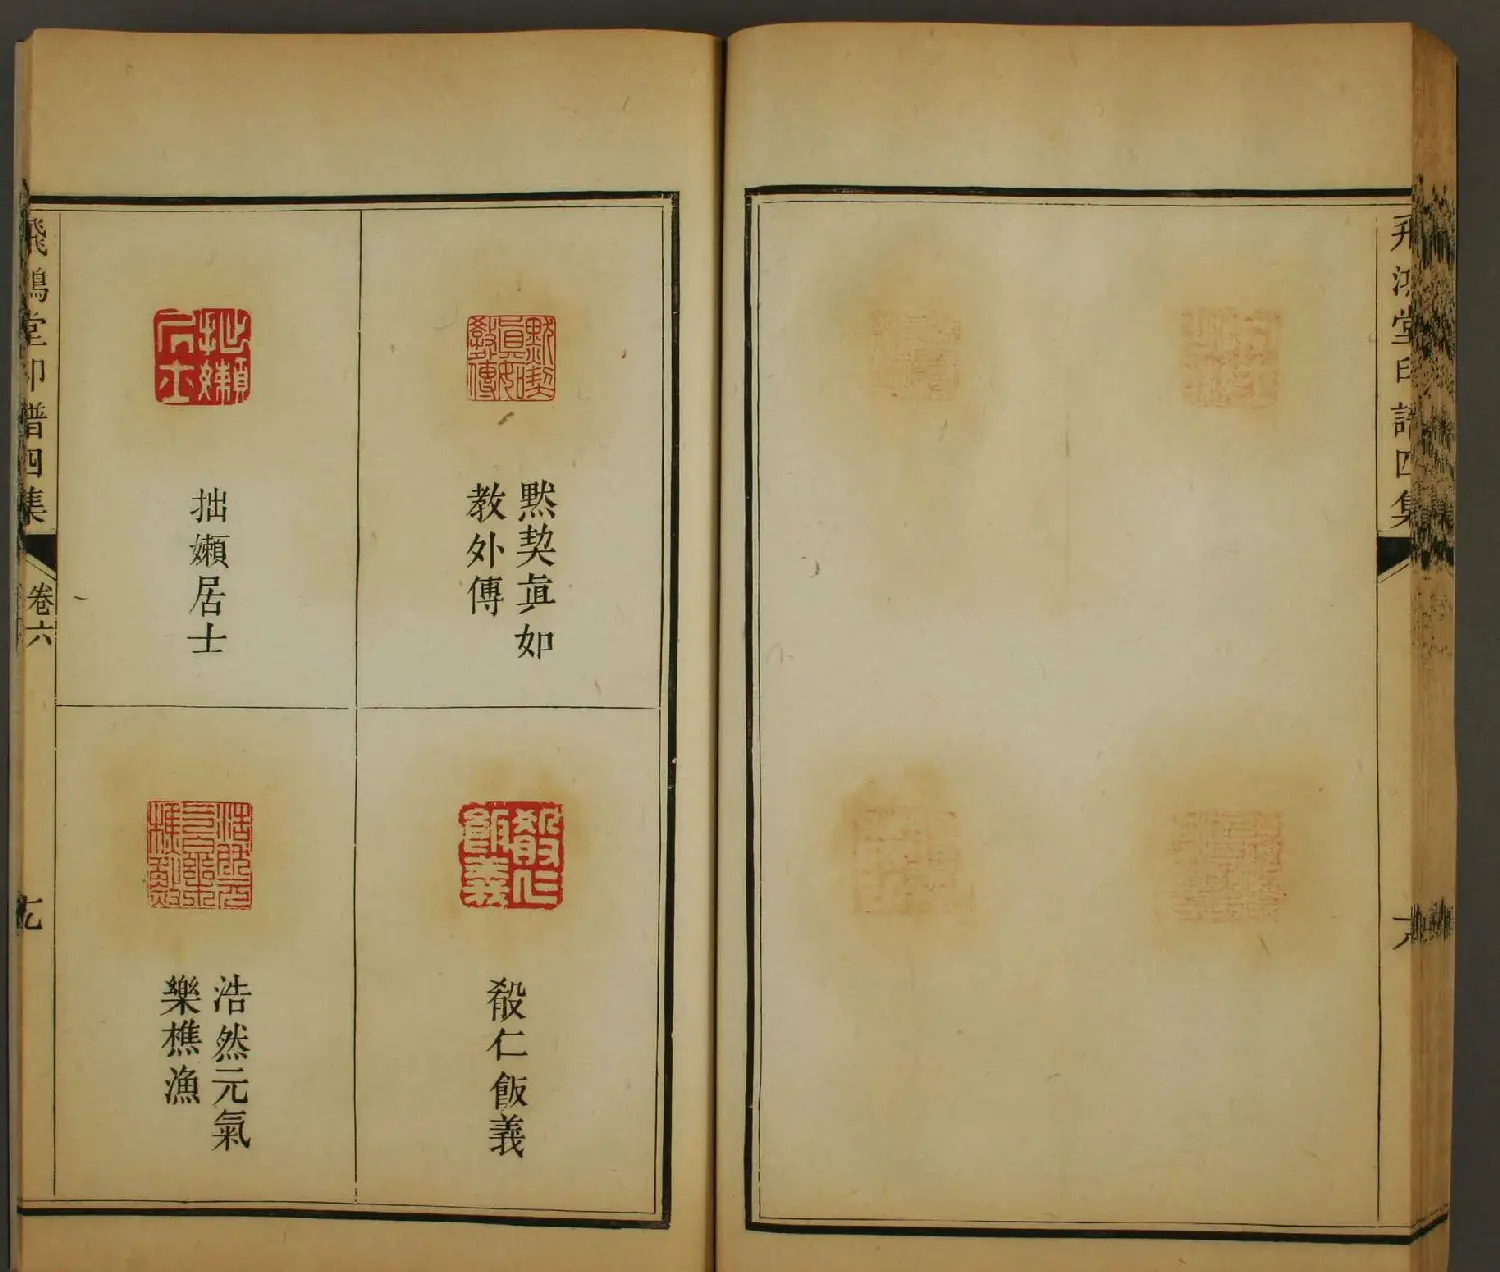 飛鴻堂印譜四集
默契真如
教外傳
殽仁飯義
拙嬾居士
浩然元氣
樂樵漁
飛鴻堂印譜四集
卷六
七